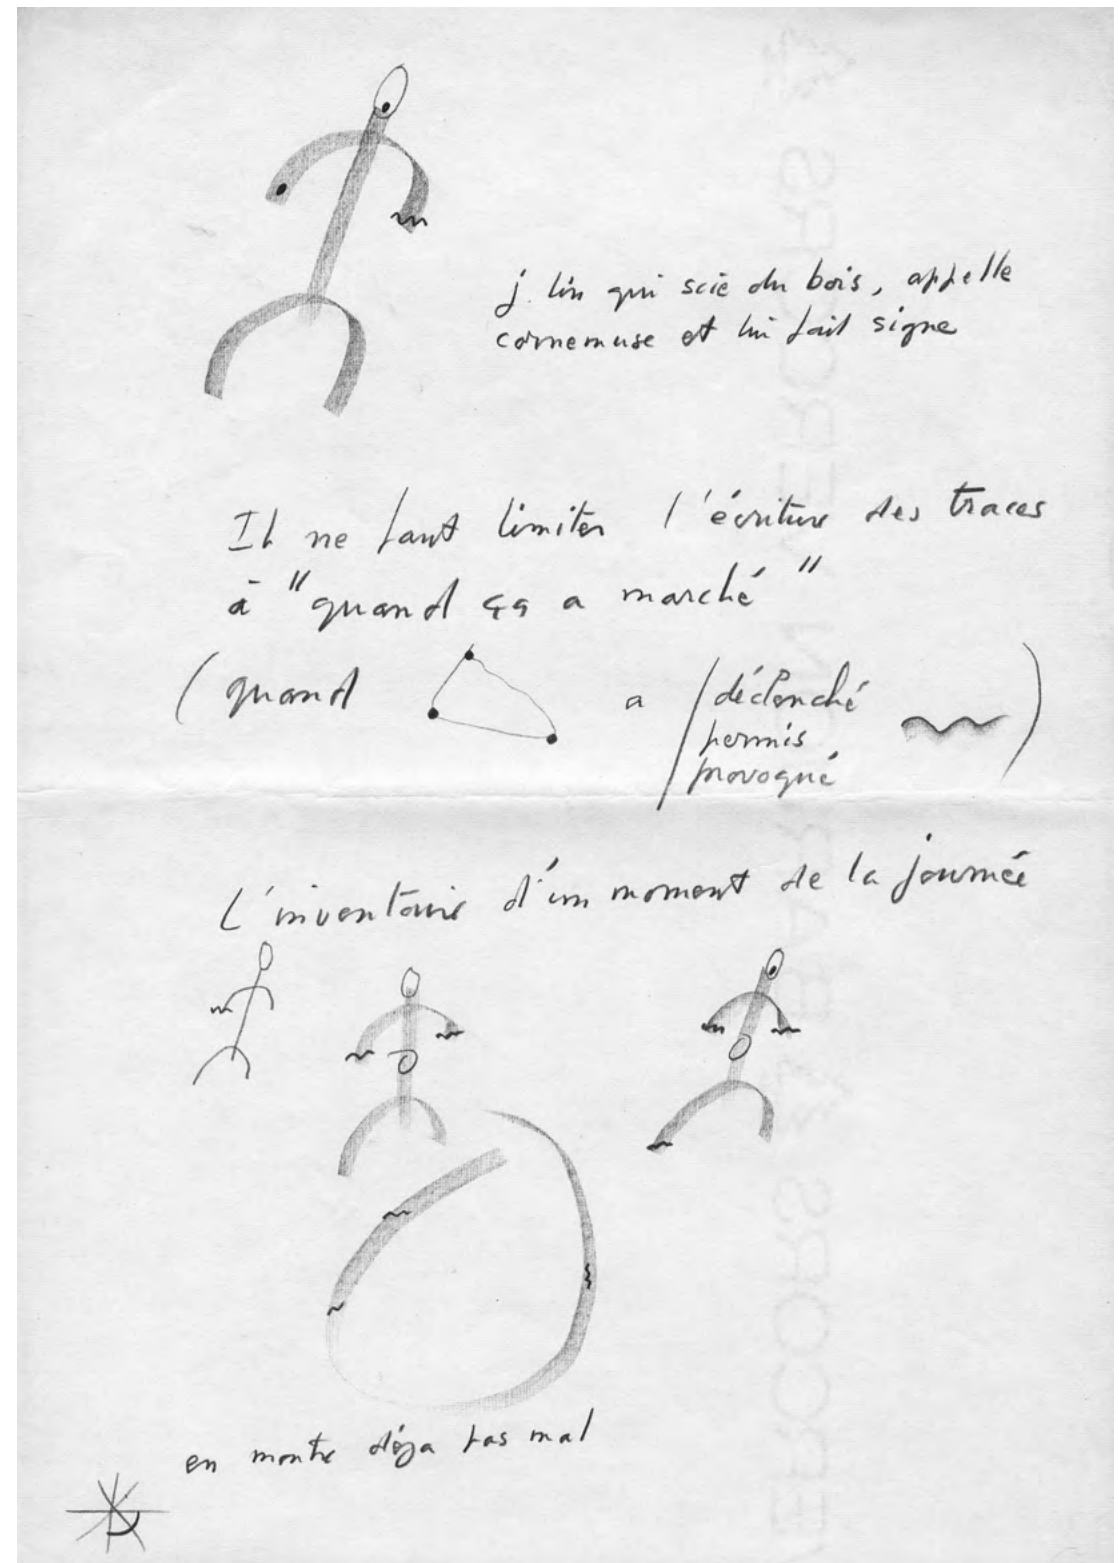 j. lin qui scie du bois, appelle
cornemuse et lui fait signe
Il ne faut limiter l'écriture des traces
à "quand ça a marché"
(quand a / déclenché )
permis
provoqué
L'inventaire d'un moment de la journée
en montre déja pas mal